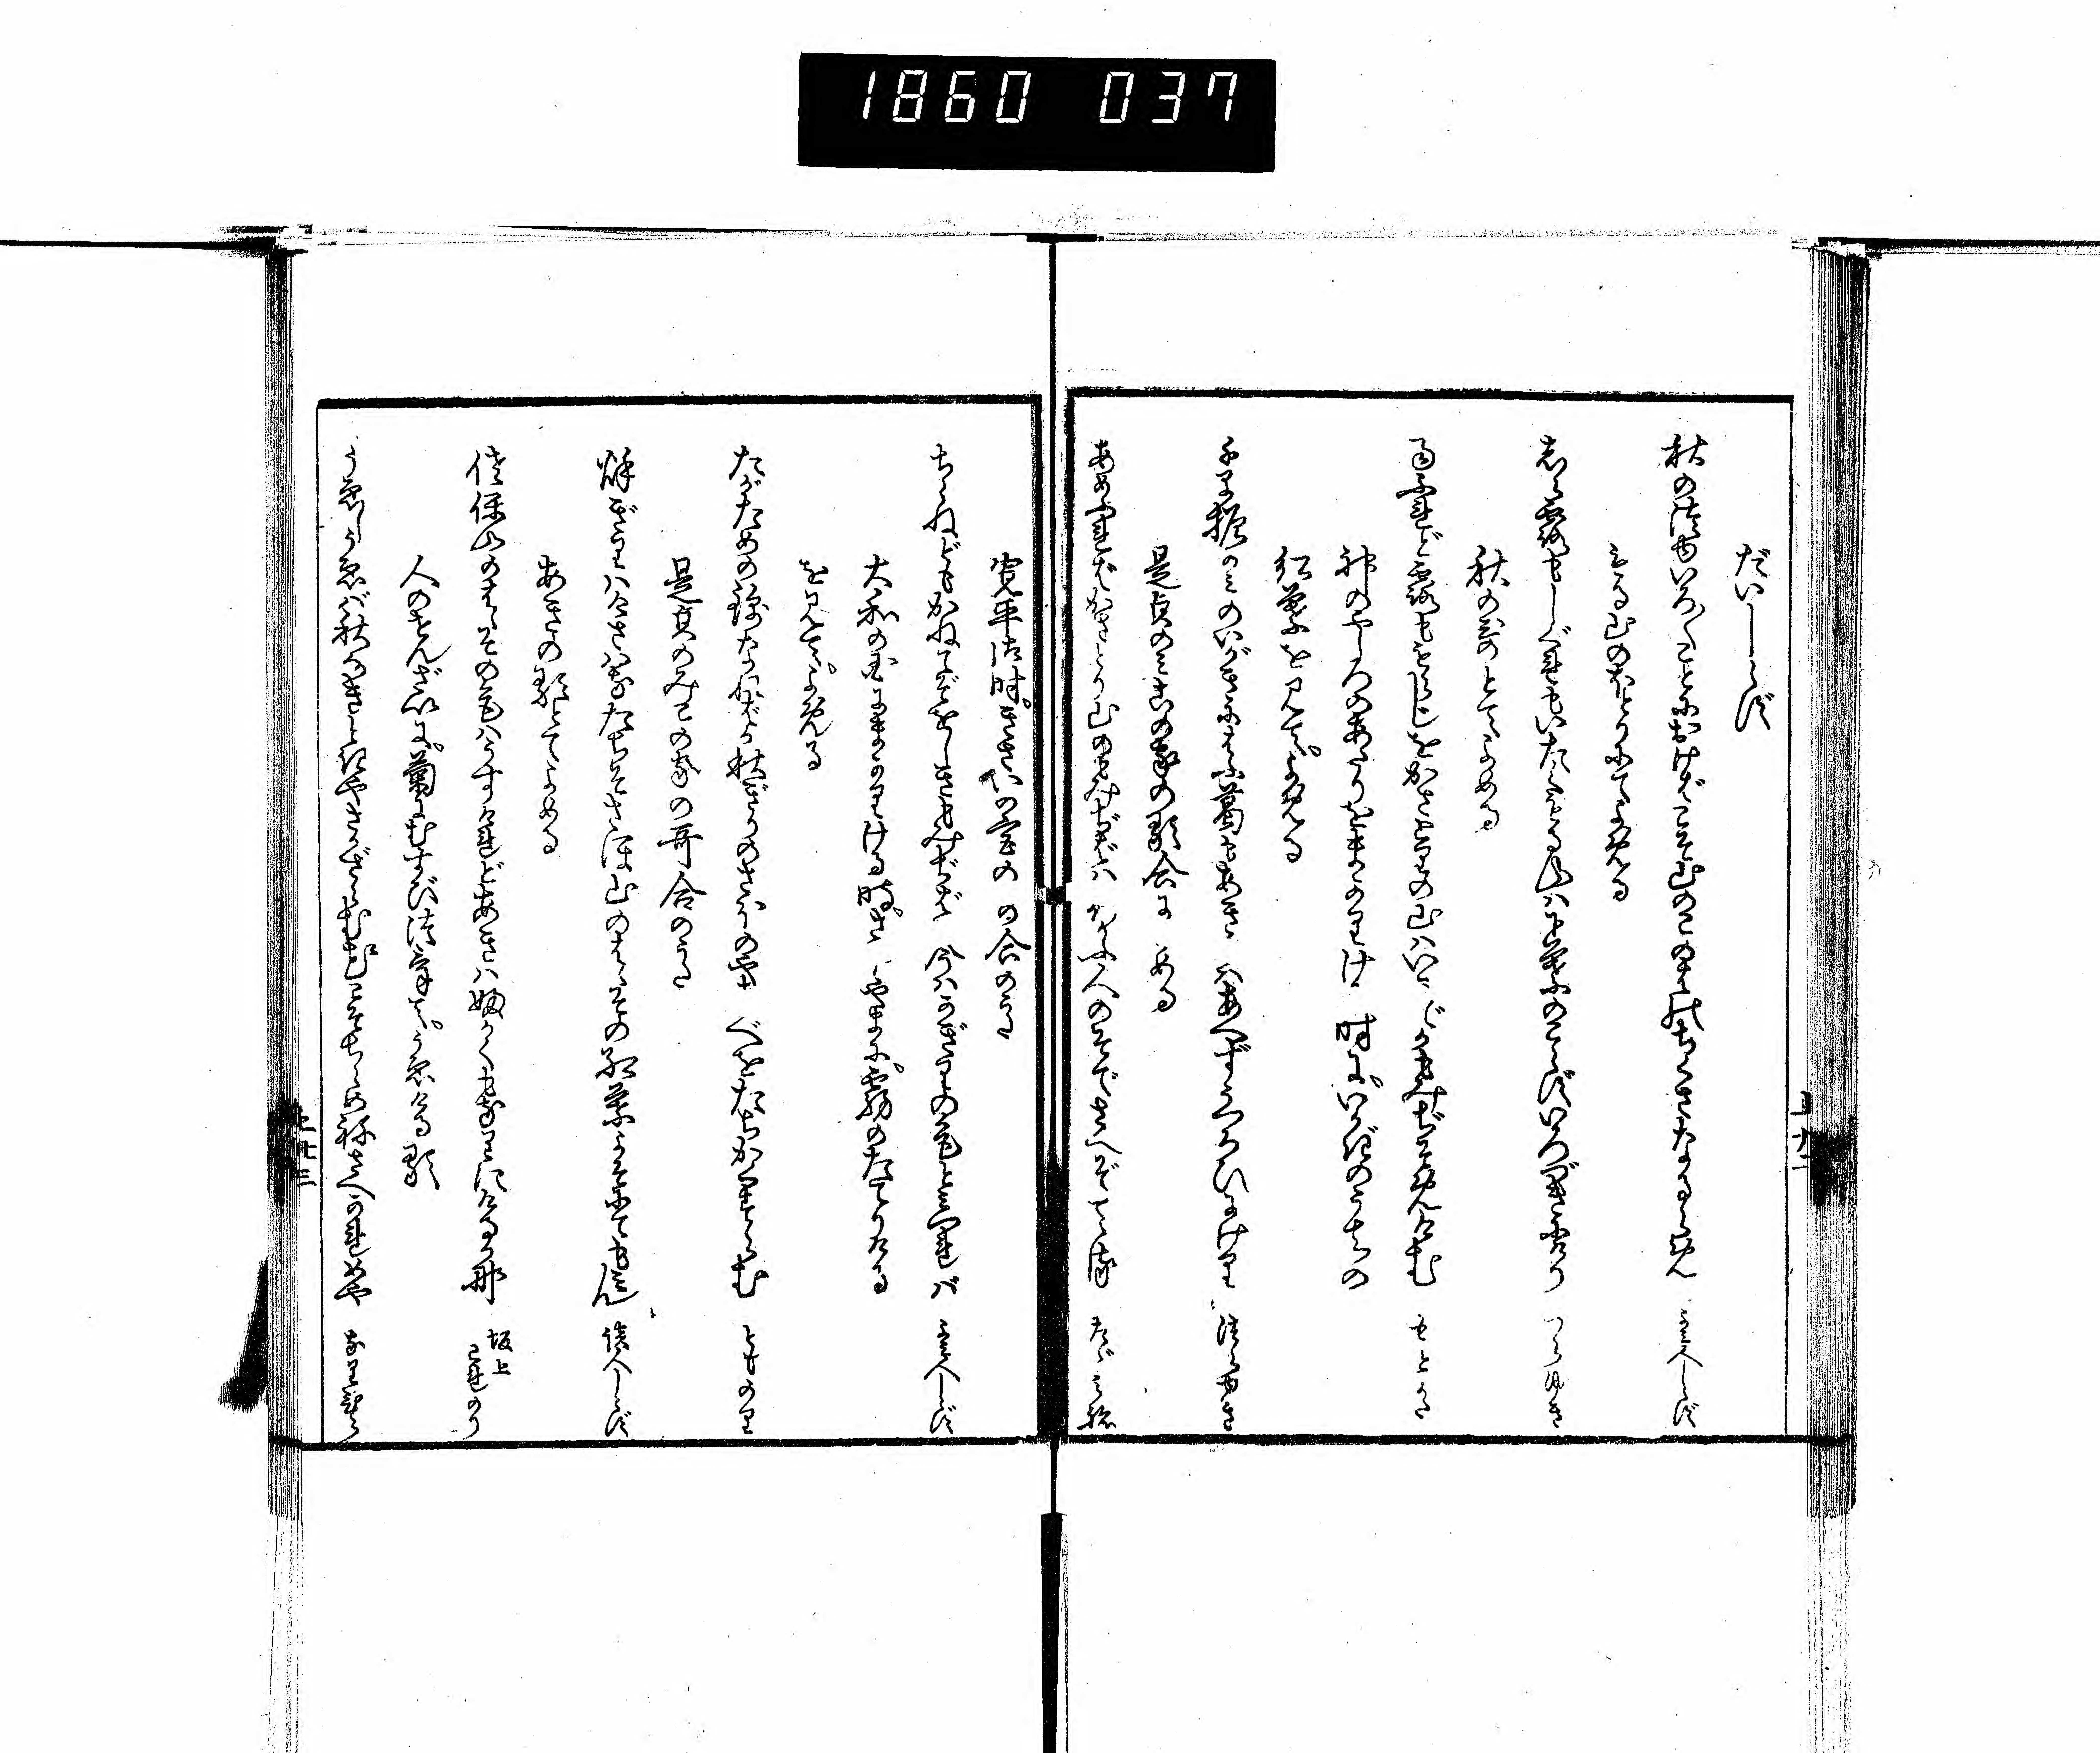 1860 037
だいしらず
秋の露いろ〳〵ことにおけばこそ山のこのはのちくさなるらめ よみ人しらず
もる山のほとりにてよめる
しら露もしぐれもいたくもる山は下葉のこらずいろづきにけり つらゆき
秋の哥とてよめる
雨ふれど露ももらじをかさとりの山はいかでかもみぢそめけむ もとかた
神のやしろのあたりをまかりける時に。いがきのうちの
紅葉を見て。よめる
千早振神のいがきにはふ葛も秋にはあへずうつろひにけり つらゆき
是貞のみこの家の歌合によめる
あめふればかさとり山のもみぢばはゆきかふ人のそでさへぞてる たゞみね
寛平御時。きさいの宮の哥合のうた
ちらねどもかねてぞをしきもみぢばは今はかぎりの色と見つれば よみ人しらず
大和の国にまかりける時。さほやまに。霧のたてりける
を見て。よめる
たがための錦なればか秋ぎりのさほの山べをたちかくすらむ とものり
是貞のみこの家の哥合のうた
秋ぎりはけさはなたちそさほ山のはゝその紅葉よそにても見ん 読人しらず
あきの歌とてよめる
佐保山のはゝその色はうすけれどあきは深くもなりにけるかな 坂上これのり
人のせんざいに。菊にむすびつけて。うゑける歌
うゑしうゑば秋なきときやさかざらむ花こそちらめ根さへかれめや なりひら